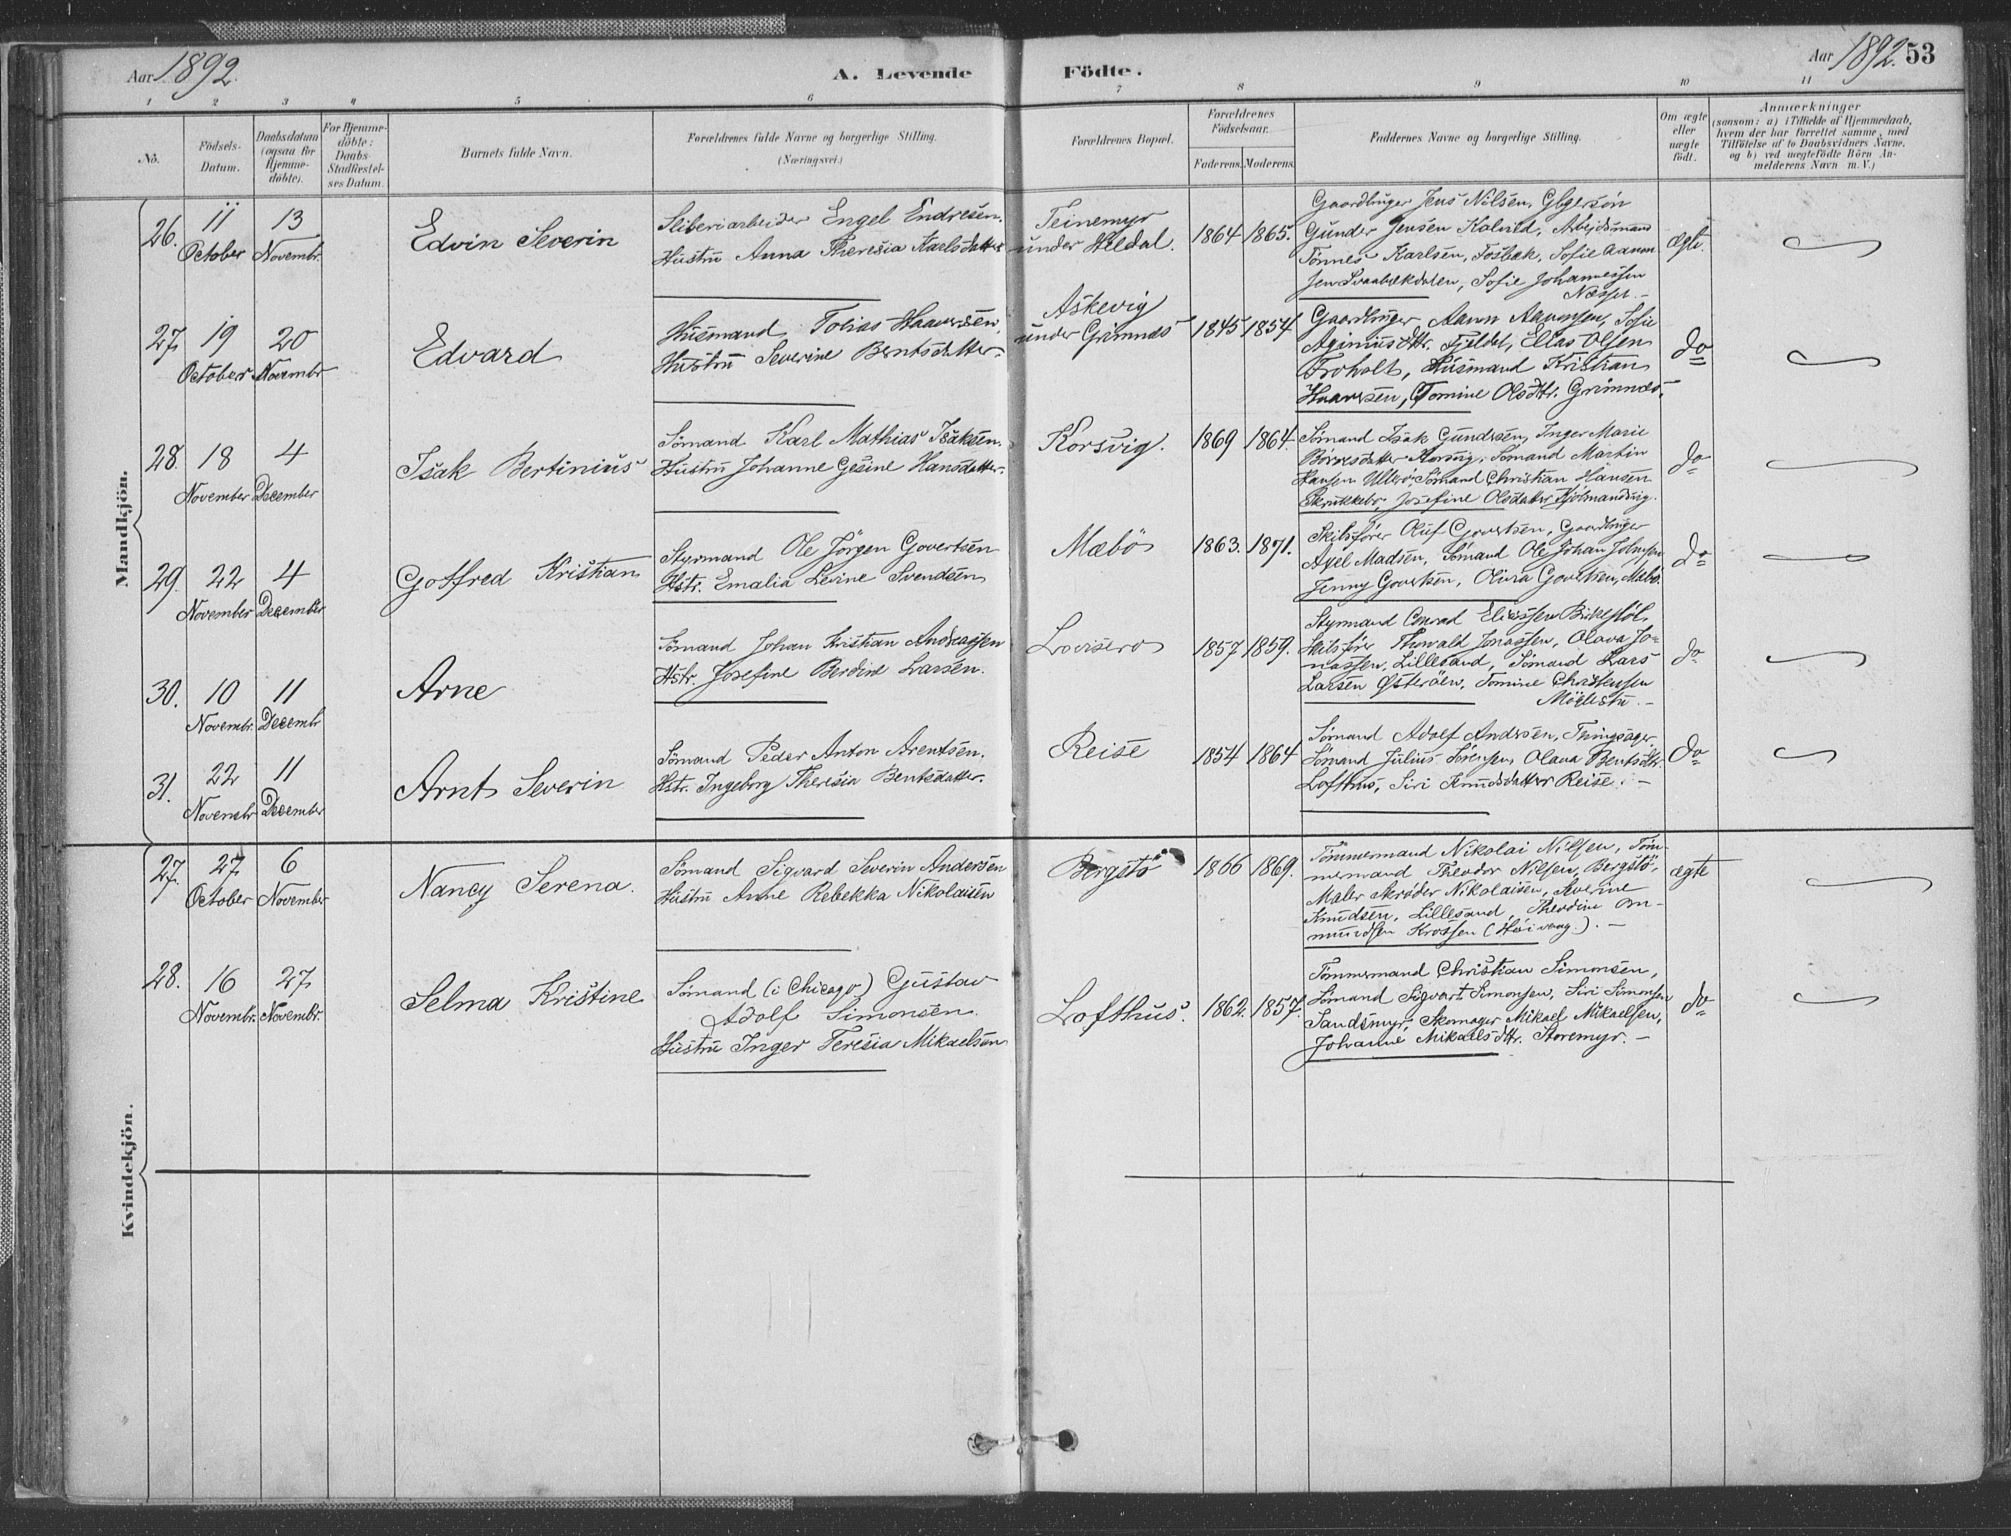 Aar 1892.
A. Levende
Födte.
Aar 1892. 53
1 2 3 4 5 6 7 8 9 10 11
No.
Födsels-
Datum.
Daabsdatum
(ogsaa for
Hjemme-
döbte).
For Hjemme-
döbte:
Daabs-
Stadfæstel-
ses Datum.
Barnets fulde Navn.
Forældrenes fulde Navne og borgerlige Stilling.
(Næringsvei.)
Forældrenes Bopæl.
Forældrenes
Födselsaar.
Faderens. Moderens.
Faddernes Navne og borgerlige Stilling.
Om ægte
eller
uægte
födt.
Anmærkninger
(saasom: a) i Tilfælde af Hjemmedaab,
hvem der har forrettet samme, med
Tilföielse af to Daabsvidners Navne,
og b) ved uægtefödte Börn An-
melderens Navn m. V.)
Mandkjön.
26.
11
October
13
Novembr.
Edvin Severin
Sliberiarbeider Engel Endresen.
Hustru Anna Theresia Karlsdatter
Teinemyr
under Heldal.
1864 1865.
Gaardbruger Jens Nilsen,
Gunder Jensen Kalvild, Arbejdsmand
Tönnes Karlsen, Fosbæk, Sofie
Sofie Johannessen
Næsset. —
ægte.
27.
19
October
20
Novembr
Edvard
Husmand Tobias Haaversen,
Hustru Severine Berntsdatter.
Askevig
under Grimnes
1845 1854
Gaardbruger Aanon Aanonsen, Sofie
Ellas Olsen
Troholt, Husmand Kristian
Haaversen, Tomine Olsdtr. Grimnes.
do
28.
18
November
4
December
Isak Bertinius
Sömand Karl Mathias Isaksen.
Hustru Johanne Gesine Hansdatter.
Korsvig.
1869 1864.
Sömand Isak Gundersen, Inger Marie
Korsvig, Sömand Martin
Hansen Ulerö, Sömand Christian Hansen
Josefine Olsdatter
do
29.
22
November
4
December
Gotfred Kristian
Styrmand Ole Jörgen Govertsen
Hstr. Emalia Levine Svendsen
Mæbö
1863. 1871.
Skibsförer Oluf Govertsen, Gaardbruger
Axel Madsen, Sömand Ole Johan Johnsen
Jenny Govertsen, Olivia Govertsen, Mæbö.
do
30.
10
Novembr.
11
Decembr
Arne
Sömand Johan Kristian Andreassen
Hstr. Josefine Berdine Larsen.
Lovisero
1857 1859.
Styrmand Conrad Eliassen
Skibsförer Thorvald Jonassen, Olava Jo-
nassen, Lillesand, Sömand Lars
Larsen Österöen, Tomine Christensen
Möglestu. —
do
31.
22
Novembr
11
December
Arnt Severin
Sömand Peder Anton Arentsen.
Hstr. Ingeborg Theresia Berntsdatter.
Reise
1854 1864
Sömand Adolf Andersen, Tingsager
Sömand Julius Sörensen, Olava Berntsdtr.
Lofthus, Siri Knudsdatter Reise. —
do
Kvindekjön.
27.
27
October
6
November
Nancy Serena.
Sömand Sigvard Severin Andersen
Hustru Anne Rebekka Nikolaisen
Bergstö
1866 1869.
Tömmermand Nikolai Nilsen, Töm-
mermand Theodor Nilsen, Bergstö,
Maler Skröder Nikolaisen, Severine
Knudsen, Lillesand, Theodine Am-
mundsen Krossen (Höivaag). —
ægte
28.
16
Novembr.
27
Novembr.
Selma Kristine
Sömand (i Chicago) Gustav
Adolf Simonsen.
Hustru Inger Teresia Mikaelsen
Lofthus.
1862. 1857.
Tömmermand Christian Simonsen,
Sömand Sigvart Simonsen, Siri Simonsen
Sandsmyr, Skomager Mikael Mikaelsen,
Johanne Mikaelsdtr. Storemyr. —
do